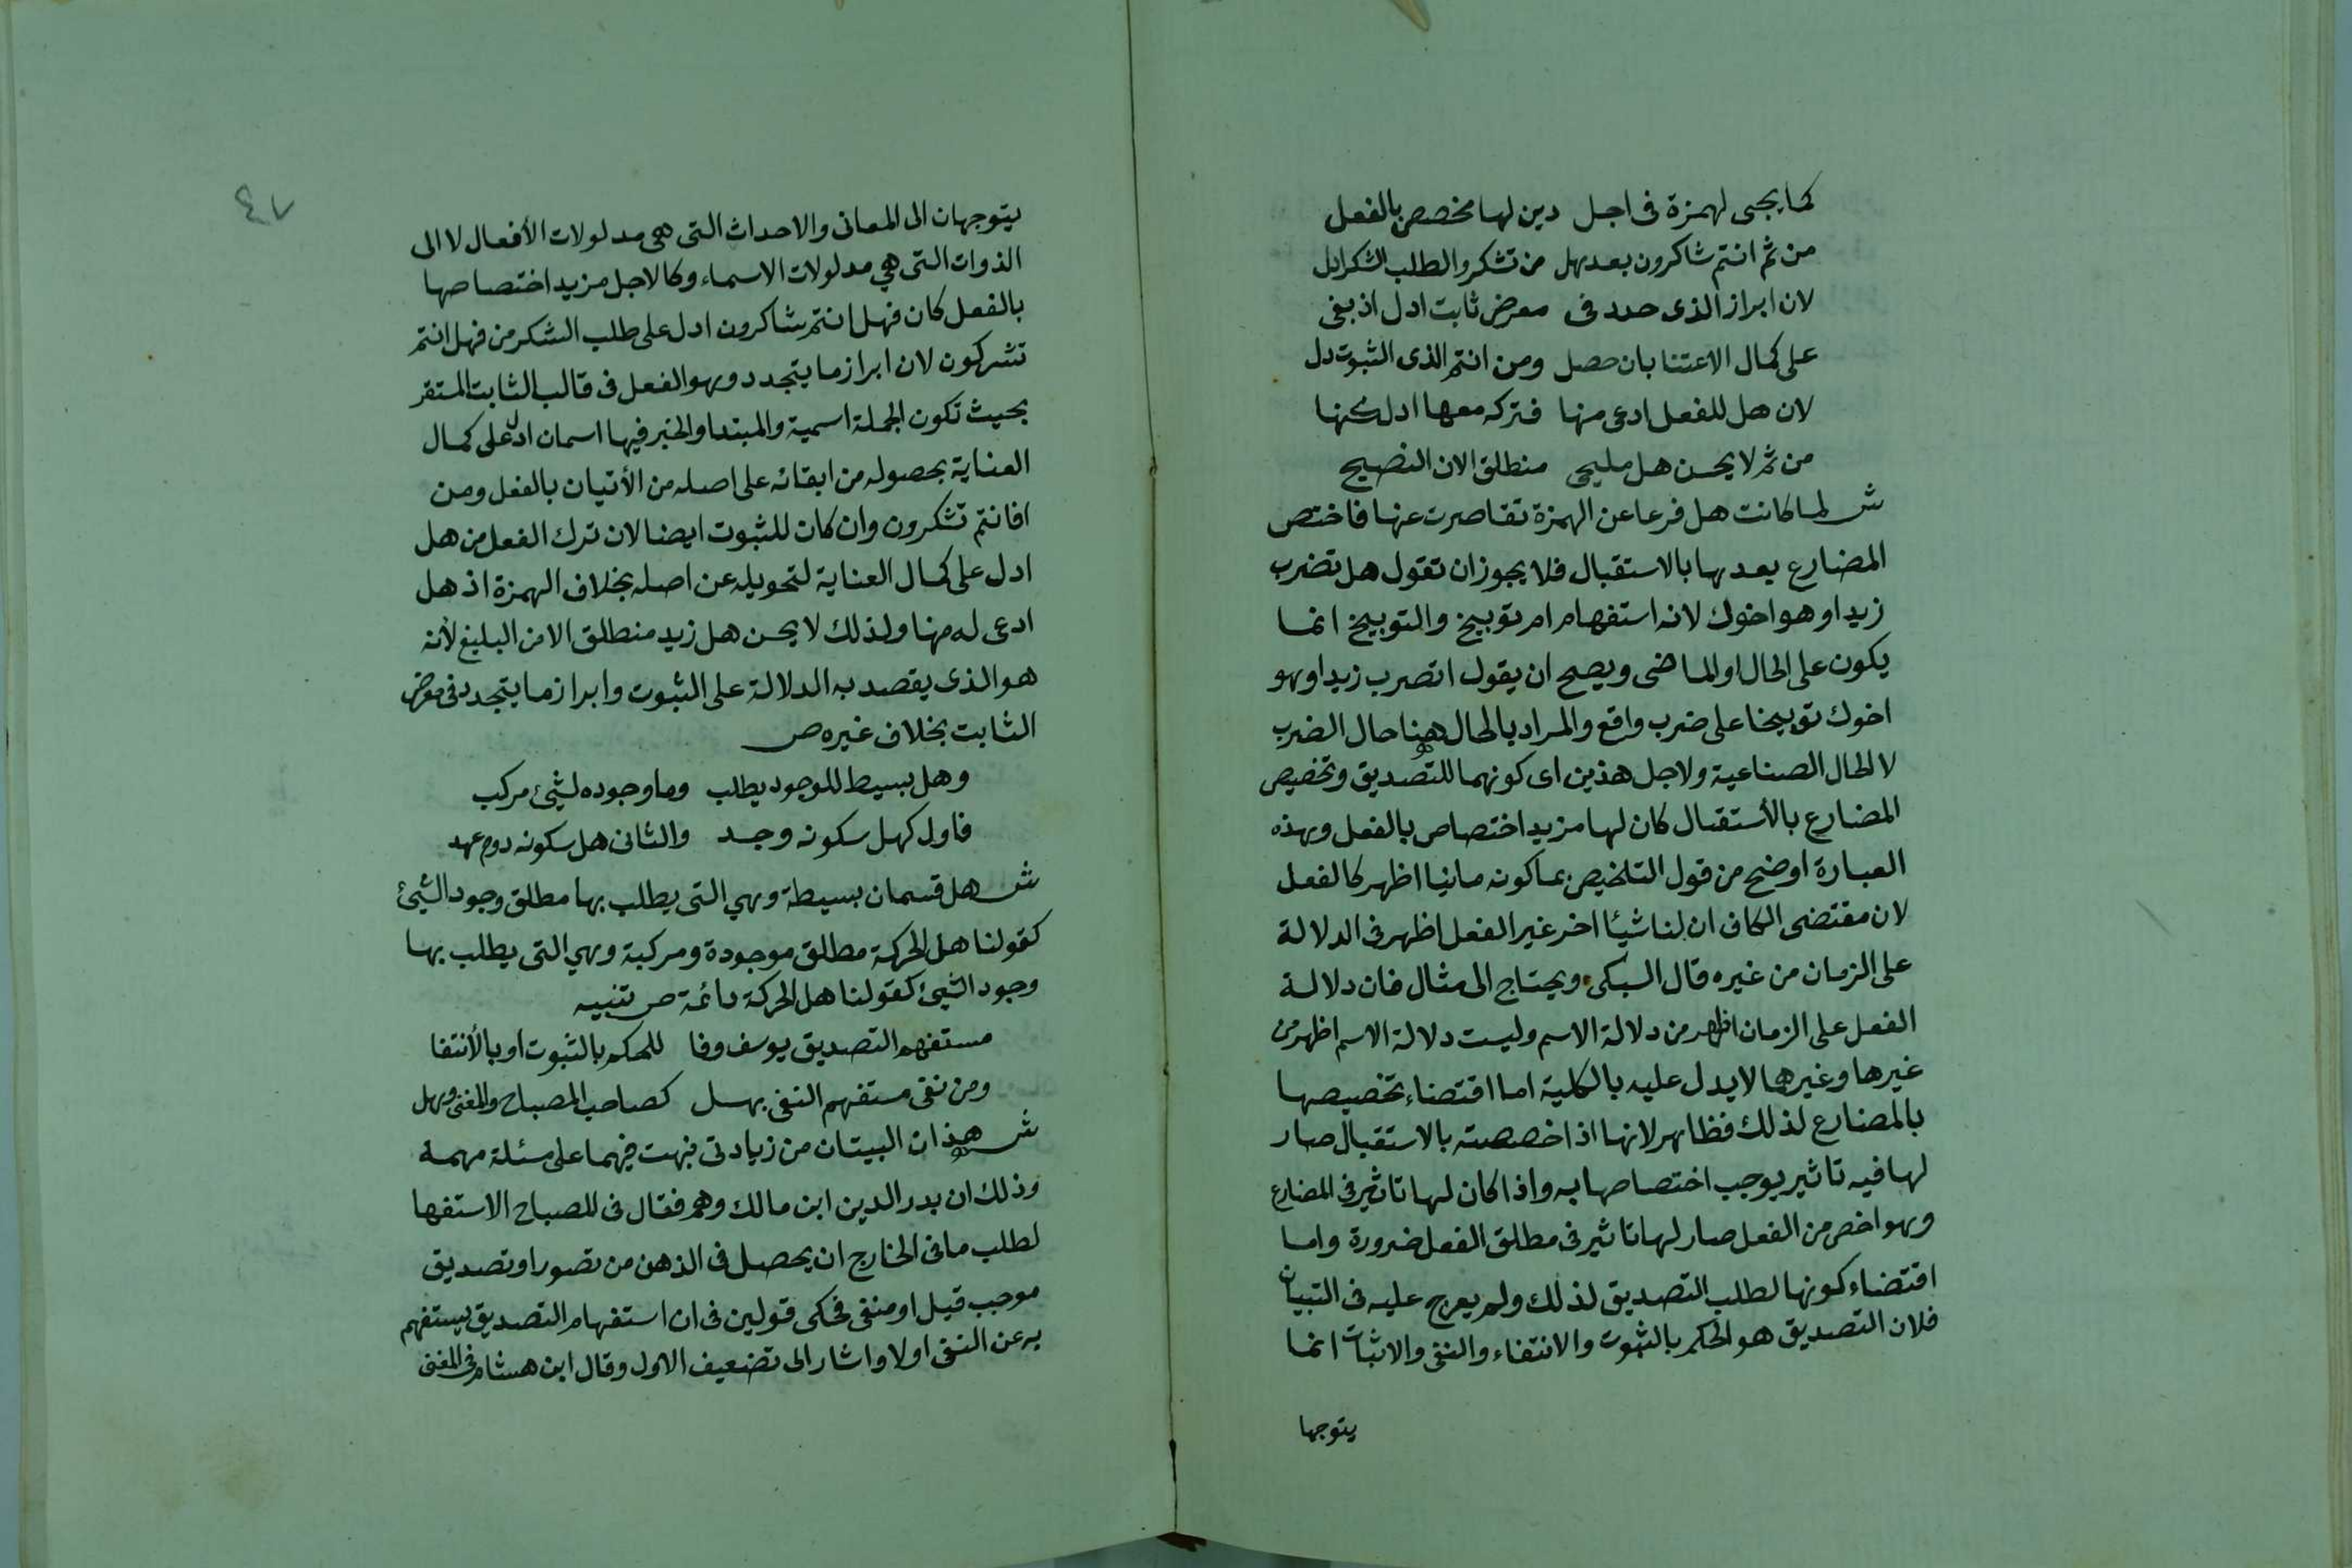 كما يجى لهمزة فى اجل دين لها مخصص بالفعل
من ثم انتم شاكرون بعد هل من تشكروا لطلب الشكر ادل
لان ابراز الذى حدد فى معرض ثابت ادل اذ بقى
على كمال الاعتنا بان حصل ومن انتم الذى الثبوت دل
لان هل للفعل ادعى منها فتركه معها ادل كنها
من ثم لا يحسن هل مليحى منطلق الان الفصيح
ش لما كانت هل فرعا عن الهمزة تقاصرت عنها فاختص
المضارع بعدها بالاستقبال فلا يجوز ان تقول هل تضرب
زيدا وهو اخوك لانه استفهام ام توبيخ والتوبيخ انما
يكون على الحال او الماضى ويصح ان يقول اتضرب زيدا وهو
اخوك توبيخا على ضرب واقع والمراد بالحال هنا حال الضرب
لا الحال الصناعية ولاجل هذين اى كونهما للتصديق وتخصيص
المضارع بالأستقبال كان لها مزيد اختصاص بالفعل وهذه
العبارة اوضح من قول التلخيص بما كونه مانيا اظهر كالفعل
لان مقتضى الكاف ان لنا شيئا اخر غير الفعل اظهر فى الدلالة
على الزمان من غيره قال السبكى ويحتاج الى مثال فان دلالة
الفعل على الزمان اظهر من دلالة الاسم وليست دلالة الاسم اظهر من
غيرها وغيرها لا يدل عليه بالكلية اما اقتضاء تخصيصها
بالمضارع لذلك فظاهر لانها اذا خصصته بالاستقبال صار
لها فيه تاثير يوجب اختصاصها به واذا كان لها تاثير فى المضارع
وهو اخص من الفعل صار لها تاثير فى مطلق الفعل ضرورة واما
اقتضاء كونها لطلب التصديق لذلك ولم يعرج عليه فى التبيان
فلان التصديق هو الحكم بالثبوت والانتفاء والنفى والاثبات انما
يتوجها
٤٧
يتوجهان الى المعانى والاحداث التى هى مدلولات الأفعال لا الى
الذوات التى هى مدلولات الاسماء وكا لاجل مزيد اختصاصها
بالفعل كان فهل انتم شاكرون ادل على طلب الشكر من فهل انتم
تشركون لان ابراز ما يتجدد وهو الفعل فى قالب الثابت المستقر
بحيث تكون الجملة اسمية والمبتدا والخبر فيها اسمان ادل على كمال
العناية بحصوله من ابقائه على اصله من الأتيان بالفعل ومن
افانتم تشكرون وان كان للثبوت ايضا لان ترك الفعل من هل
ادل على كمال العناية لتحويله عن اصله بخلاف الهمزة اذ هل
ادعى له منها ولذلك لا يحسن هل زيد منطلق الا من البليغ لأنه
هو الذى يقصد به الدلالة على الثبوت وابراز ما يتجدد فى معرض
الثابت بخلاف غيره ص
وهل بسيط للوجود يطلب وما وجوده لشيئ مركب
فاول كهل سكونه وجد والثانى هل سكونه دوم عهد
ش هل قسمان بسيطة وهي التى يطلب بها مطلق وجود الشيئ
كقولنا هل الحركة مطلق موجودة ومركبة وهي التى يطلب بها
وجود الشيئ كقولنا هل الحركة دائمة ص تنبيه
مستفهم التصديق يوسف وفا للحكم بالثبوت او بالأنتفا
ومن نفى مستفهم النفى بهل كصاحب المصباح والمغنى وهل
ش هذان البيتان من زيادتى نبهت فيهما على مسئلة مهمة
وذلك ان بدر الدين ابن مالك وهم فقال فى المصباح الاستفها
لطلب ما فى الخارج ان يحصل فى الذهن من تصور او تصديق
موجب قيل او منفى فحكى قولين فى ان استفهام التصديق يستفهم
به عن النفى اولا واشار الى تضعيف الاول وقال ابن هشام فى المغنى